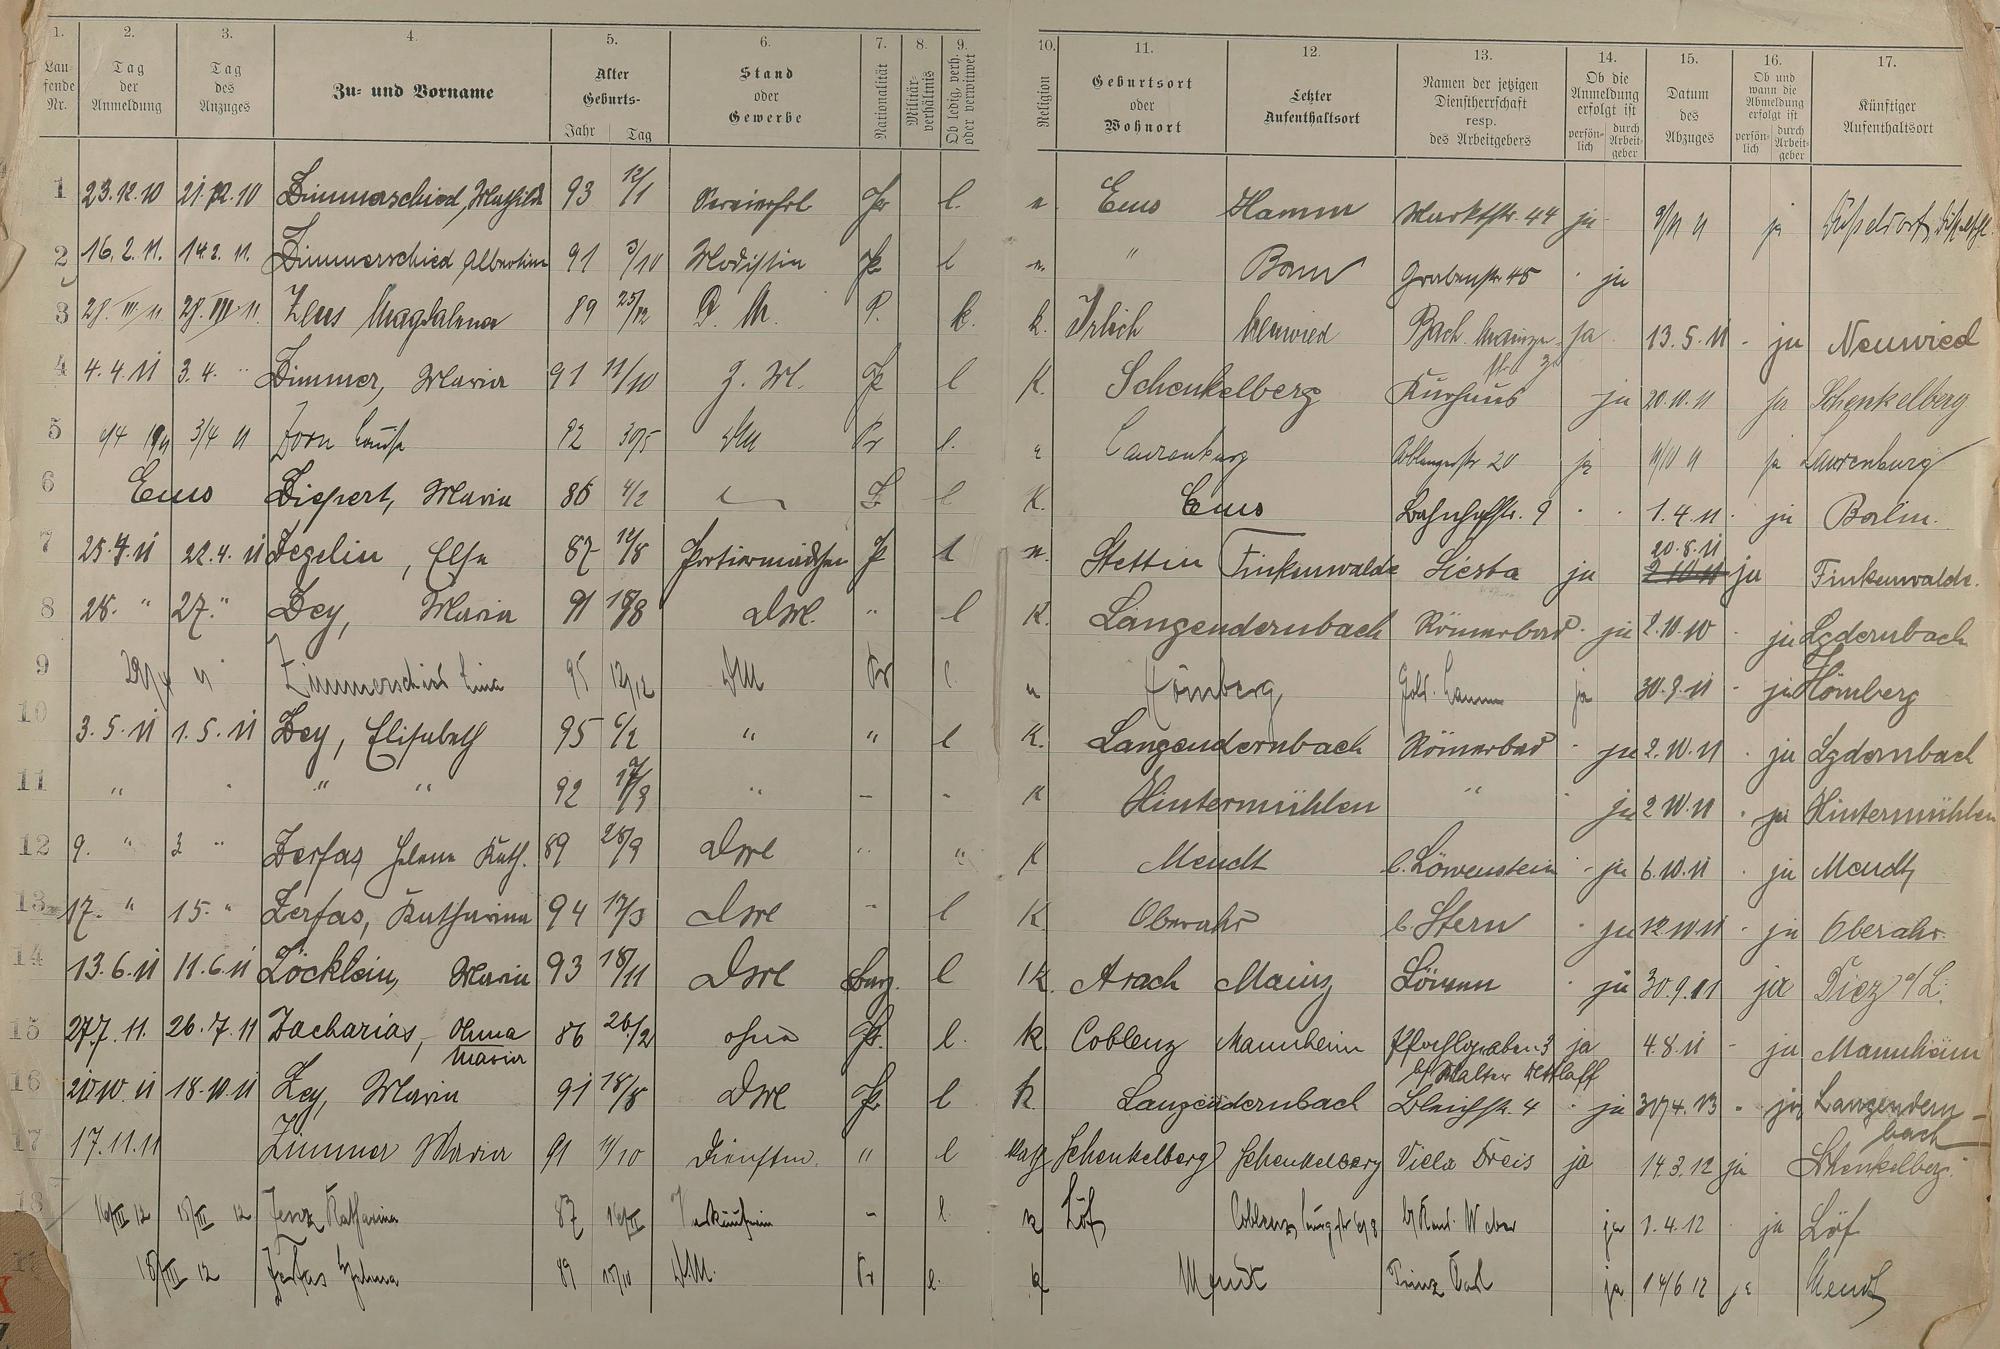 1. 2. 3. 4. 5. 6. 7. 8. 9. 10. 11. 12. 13. 14. 15. 16. 17.
Laufende Nr.
Tag der Anmeldung
Tag des Anzuges
Zu- und Vorname
Alter Geburts-
Jahr Tag
Stand oder Gewerbe
Nationalität
Militärverhältnis
Ob ledig, verh. oder verwitwet
Religion
Geburtsort oder Wohnort
Letzter Aufenthaltsort
Namen der jetzigen Dienstherrschaft resp. des Arbeitgebers
Ob die Anmeldung erfolgt ist
persönlich durch Arbeitgeber
Datum des Abzuges
Ob und wann die Abmeldung erfolgt ist
persönlich durch Arbeitgeber
Künftiger Aufenthaltsort
1 23.12.10 21.12.10 Zimmerschied, Mathilde 93 12/1 Pr l. Ems Hamm Marktstr. 44 ja ja
2 16.2.11. 14.2.11. Zimmerschied Albertine 91 3/10 Modistin Pr l " Bonn Grabenstr. 45 ja
3 28.III.11 28.III.11. Zeus Magdalena 89 25/12 D. M. P. k. k. Irlich Neuwied Bach ja 13.5.11 - ja Neuwied
4 4.4.11 3.4. " Zimmer, Maria 91 11/10 Z. M. Pr l K. Schenkelberg Kurhaus ja 20.10.11 ja Schenkelberg
5 3/4 11 Zorn Louise 92 30/5 DM Pr l. Laurenburg Coblenzerstr 20 ja ja Laurenburg
6 Ems Ziepert, Maria 86 4/2 l K. Ems Bahnhofstr. 9 1.4.11. ja Berlin.
7 25.4.11 22.4.11 Zezelin, Else 87 12/8 Portiermädchen Pr l Stettin Finkenwalde Siesta ja 20.8.11 2.10.11 ja Finkenwalde.
8 28. " 27. " Zey, Maria 91 18/8 DM. " l K. Langendernbach Römerbad ja 2.10.10 ja Lgdernbach
9 29/4 11 Zimmerschied Lina 95 12/12 DM Pr l Hömberg Gold. Lamm ja 30.9.11 - ja Hömberg
10 3.5.11 1.5.11 Zey, Elisabeth 95 6/2 " " l K. Langendernbach Römerbad ja 2.10.11 ja Lgdernbach
11 " " " " 92 17/9 " - - K Hintermühlen " ja 2.10.11 ja Hintermühlen
12 9. " 3 " Zerfas Helene Kath. 89 28/9 DM " " K Meudt b. Löwenstein ja 6.10.11 ja Meudt
13 17. " 15. " Zerfas, Katharina 94 17/3 DM - l K Oberahr b. Stern ja 12.10.11 ja Oberahr
14 13.6.11 11.6.11 Zöcklein, Maria 93 18/11 DM l K. Arach Mainz Löwen ja 30.9.11 ja Diez a/L.
15 27.7.11. 26.7.11 Zacharias, Anna Maria 86 26/2 ohne Pr. l. k. Coblenz Mannheim Pfahlgraben 3 ja 4.8.11 - ja Mannheim
16 20.10.11 18.10.11 Zey, Maria 91 18/8 DM Pr l k Langendernbach Bleichstr. 4 ja ja Langendernbach
17 17.11.11 Zimmer Maria 91 11/10 Dienstm. " l kath Schenkelberg Schenkelberg Villa Dreis ja 14.3.12 ja Schenkelberg
18 16/III 12 15/III 12 Katharina 87 Verkäuferin - l. k Löf Coblenz Weber ja 1.4.12 ja Löf
18/III 12 Zerfas Helena 89 15/10 D.M. Pr l. k Meudt Prinz Carl ja 14/6 12 ja Meudt